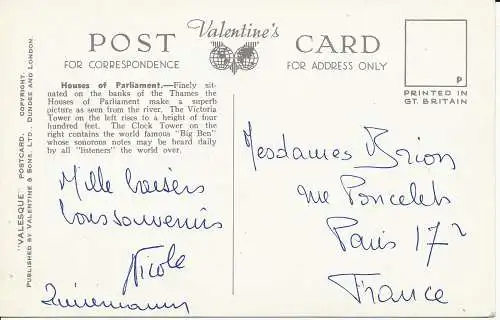 "VALESQUE" POSTCARD. COPYRIGHT.
PUBLISHED BY VALENTINE & SONS, LTD., DUNDEE AND LONDON.
POST Valentine's CARD
FOR CORRESPONDENCE
FOR ADDRESS ONLY
P
PRINTED IN
GT. BRITAIN
Houses of Parliament.—Finely sit-
uated on the banks of the Thames the
Houses of Parliament make a superb
picture as seen from the river. The Victoria
Tower on the left rises to a height of four
hundred feet. The Clock Tower on the
right contains the world famous "Big Ben"
whose sonorous notes may be heard daily
by all "listeners" the world over.
Mille baisers
bons souvenirs
Nicole
Mesdames Brion
rue Poncelet
Paris 17
France